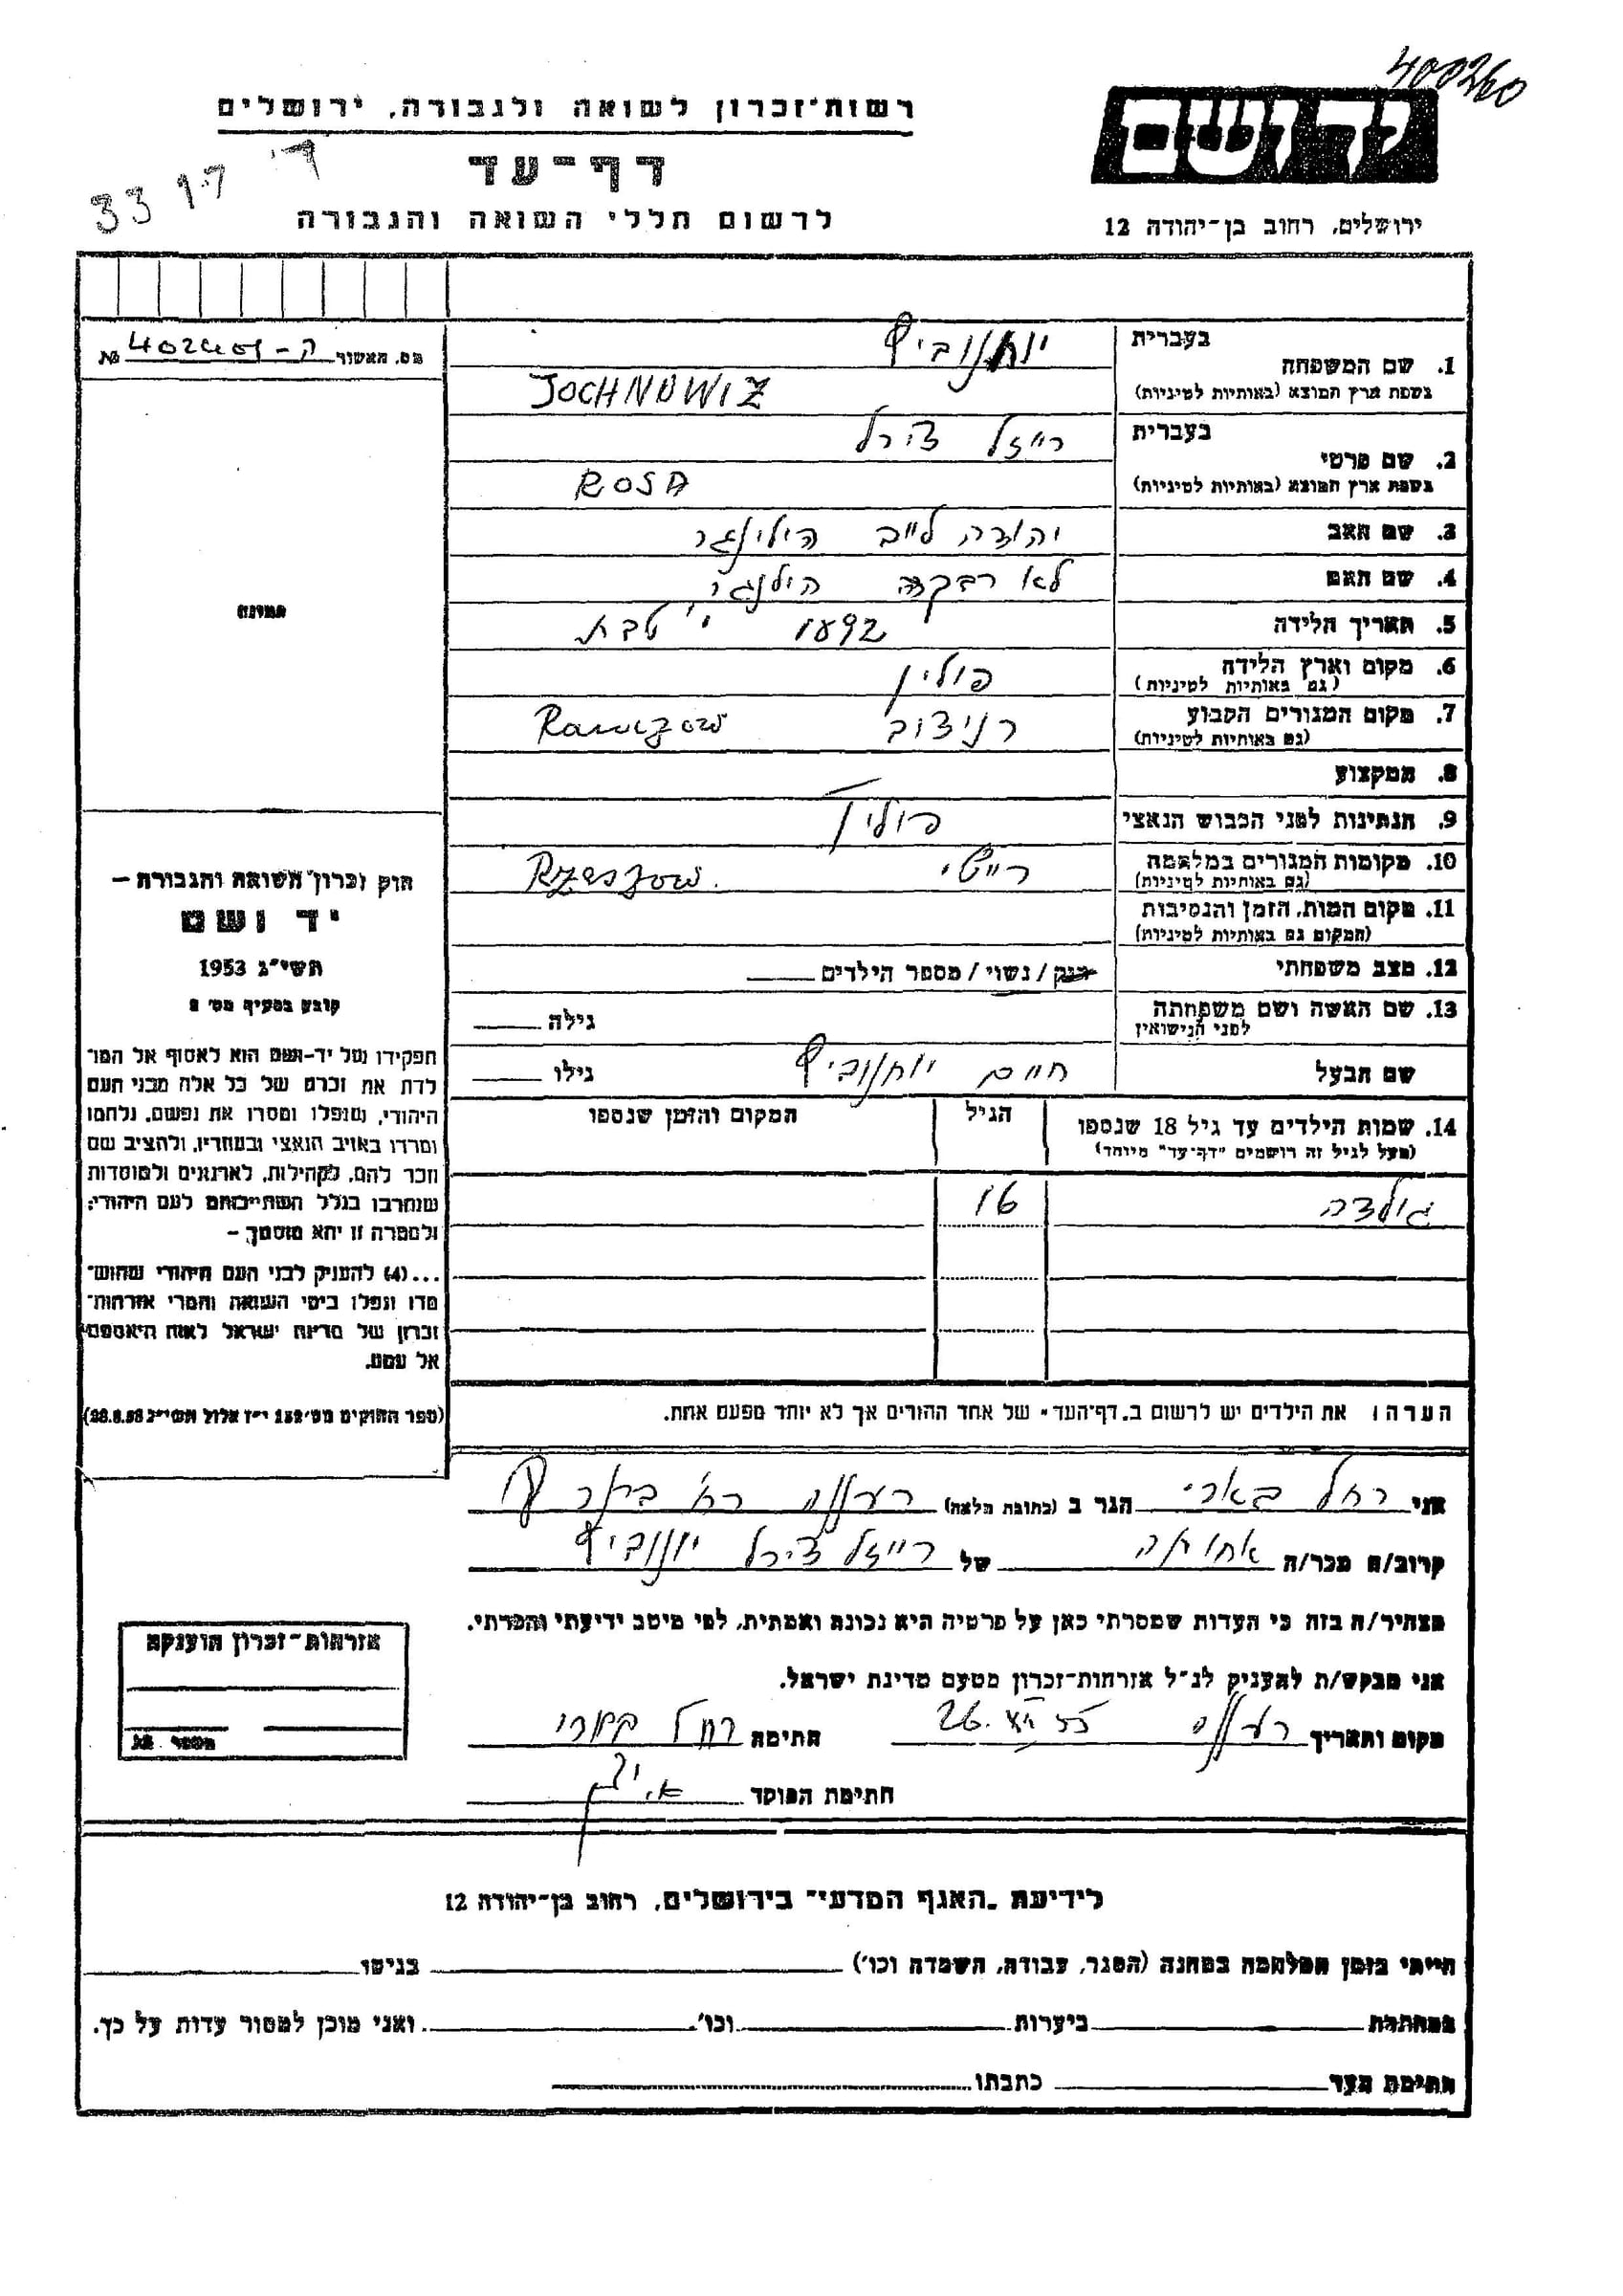 400260
רשות־זכרון לשואה ולגבורה, ירושלים
יד ושם
דף־עד
לרשום חללי השואה והגבורה
ירושלים, רחוב בן־יהודה 12
3317 ד'
מס. האשור ק-402401 №
בעברית
1. שם המשפחה יוחנוביץ
בשפת ארץ המוצא (באותיות לטיניות) JOCHNOWIZ
בעברית
2. שם פרטי רייזל צירל
בשפת ארץ המוצא (באותיות לטיניות) ROSA
3. שם האב יהודה לייב הילינגר
4. שם האם לאה רבקה הילנגר
5. תאריך הלידה 1892 י' טבת
6. מקום וארץ הלידה פולין
(גם באותיות לטיניות)
7. מקום המגורים הקבוע רניצוב Raniszow
(גם באותיות לטיניות)
8. המקצוע —
9. הנתינות לפני הכבוש הנאצי פולין
10. מקומות המגורים במלחמה ריישי Rzeszow.
(גם באותיות לטיניות)
11. מקום המות, הזמן והנסיבות
(המקום גם באותיות לטיניות)
12. מצב משפחתי רווק / נשוי / מספר הילדים
13. שם האשה ושם משפחתה גילה
לפני הנישואין
שם הבעל חיים יוחנוביץ גילו
14. שמות הילדים עד גיל 18 שנספו הגיל המקום והזמן שנספו
(מעל לגיל זה רושמים "דף־עד" מיוחד)
גולדה 16
הערה: את הילדים יש לרשום ב„דף־העד" של אחד ההורים אך לא יותר מפעם אחת.
תמונה
חוק זכרון השואה והגבורה –
יד ושם
תשי"ג 1953
קובע בסעיף מס' 2
תפקידו של יד-ושם הוא לאסוף אל המו־
לדת את זכרם של כל אלה מבני העם
היהודי, שנפלו ומסרו את נפשם, נלחמו
ומרדו באויב הנאצי ובעוזריו, ולהציב שם
וזכר להם, לקהילות, לארגונים ולמוסדות
שנחרבו בגלל השתייכותם לעם היהודי;
ולמטרה זו יהא מוסמך –
...(4) להעניק לבני העם היהודי שהוש־
מדו ונפלו בימי השואה והמרי אזרחות־
זכרון של מדינת ישראל לאות היאספם
אל עמם.
(ספר החוקים מס' 132 י"ז אלול תשי"ג 28.8.53)
אני רחל בארי הגר ב (כתובת מלאה) רעננה רח'
קרוב/ה מכר/ה אחותה של רייזל צירל יוחנוביץ
מצהיר/ה בזה כי העדות שמסרתי כאן על פרטיה היא נכונה ואמתית, לפי מיטב ידיעתי והכרתי.
אני מבקש/ת להעניק לנ"ל אזרחות־זכרון מטעם מדינת ישראל.
מקום ותאריך רעננה 26.XII 55 חתימה רחל בארי
חתימת הפוקד
אזרחות־זכרון הוענקה
מספר №
לידיעת „האגף המדעי" בירושלים, רחוב בן־יהודה 12
הייתי בזמן המלחמה במחנה (הסגר, עבודה, השמדה וכו') בגיטו
במחתרת ביערות וכו'. ואני מוכן למסור עדות על כך.
חתימת העד כתבתו